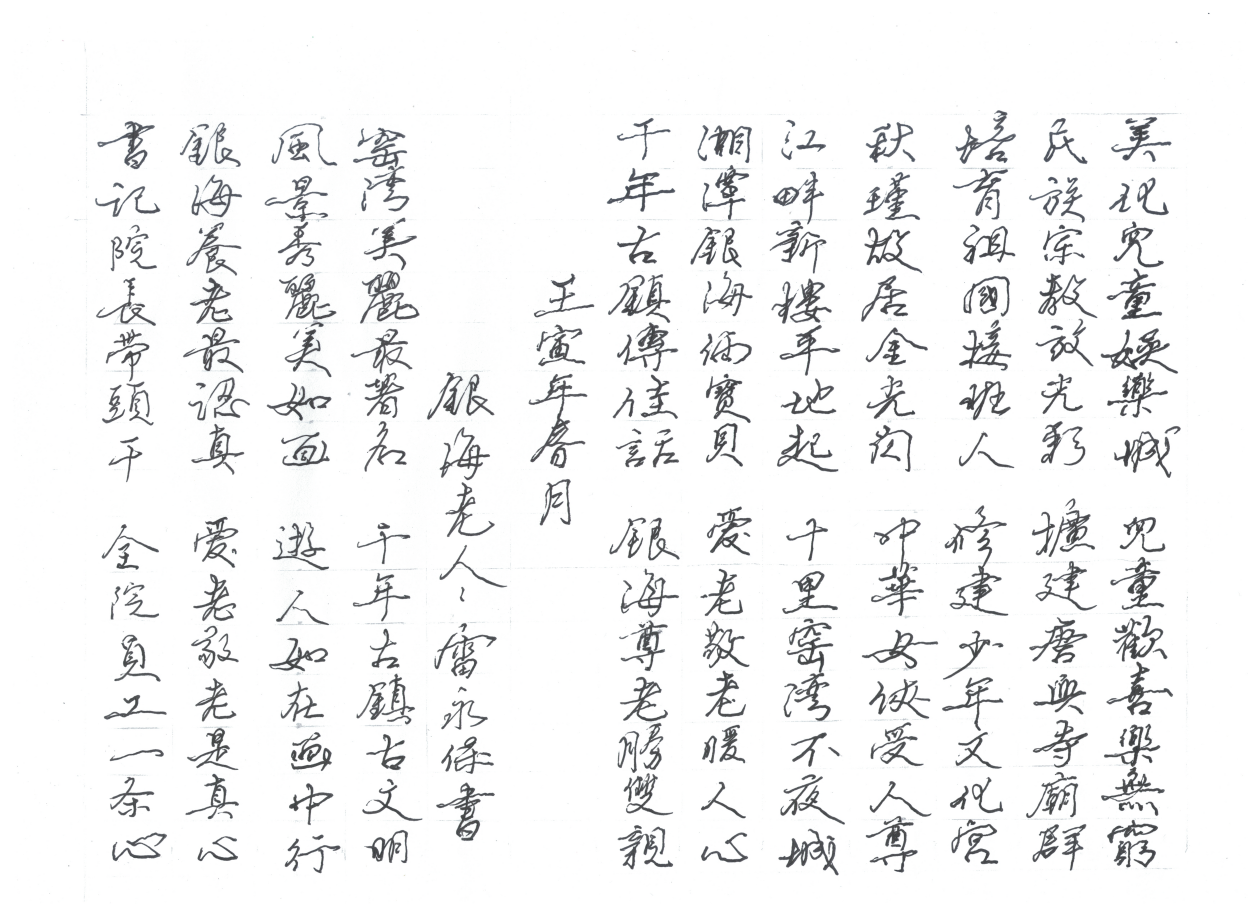 美化兒童娛樂城 兒童歡喜樂無窮
民族宗教放光彩 擴建唐興寺廟群
培育祖國接班人 修建少年文化宮
秋瑾故居金光闪 中華女侠受人尊
江畔新樓平地起 十里窑湾不夜城
湘潭銀海俩寶貝 愛老敬老暖人心
千年古鎮傳佳話 銀海尊老勝雙親
壬寅年春月
銀海老人:雷永保書
窑湾美麗最著名 千年古鎮古文明
風景秀麗美如画 遊人如在画中行
銀海養老最認真 愛老敬老是真心
書記院長帶頭干 全院員工一条心